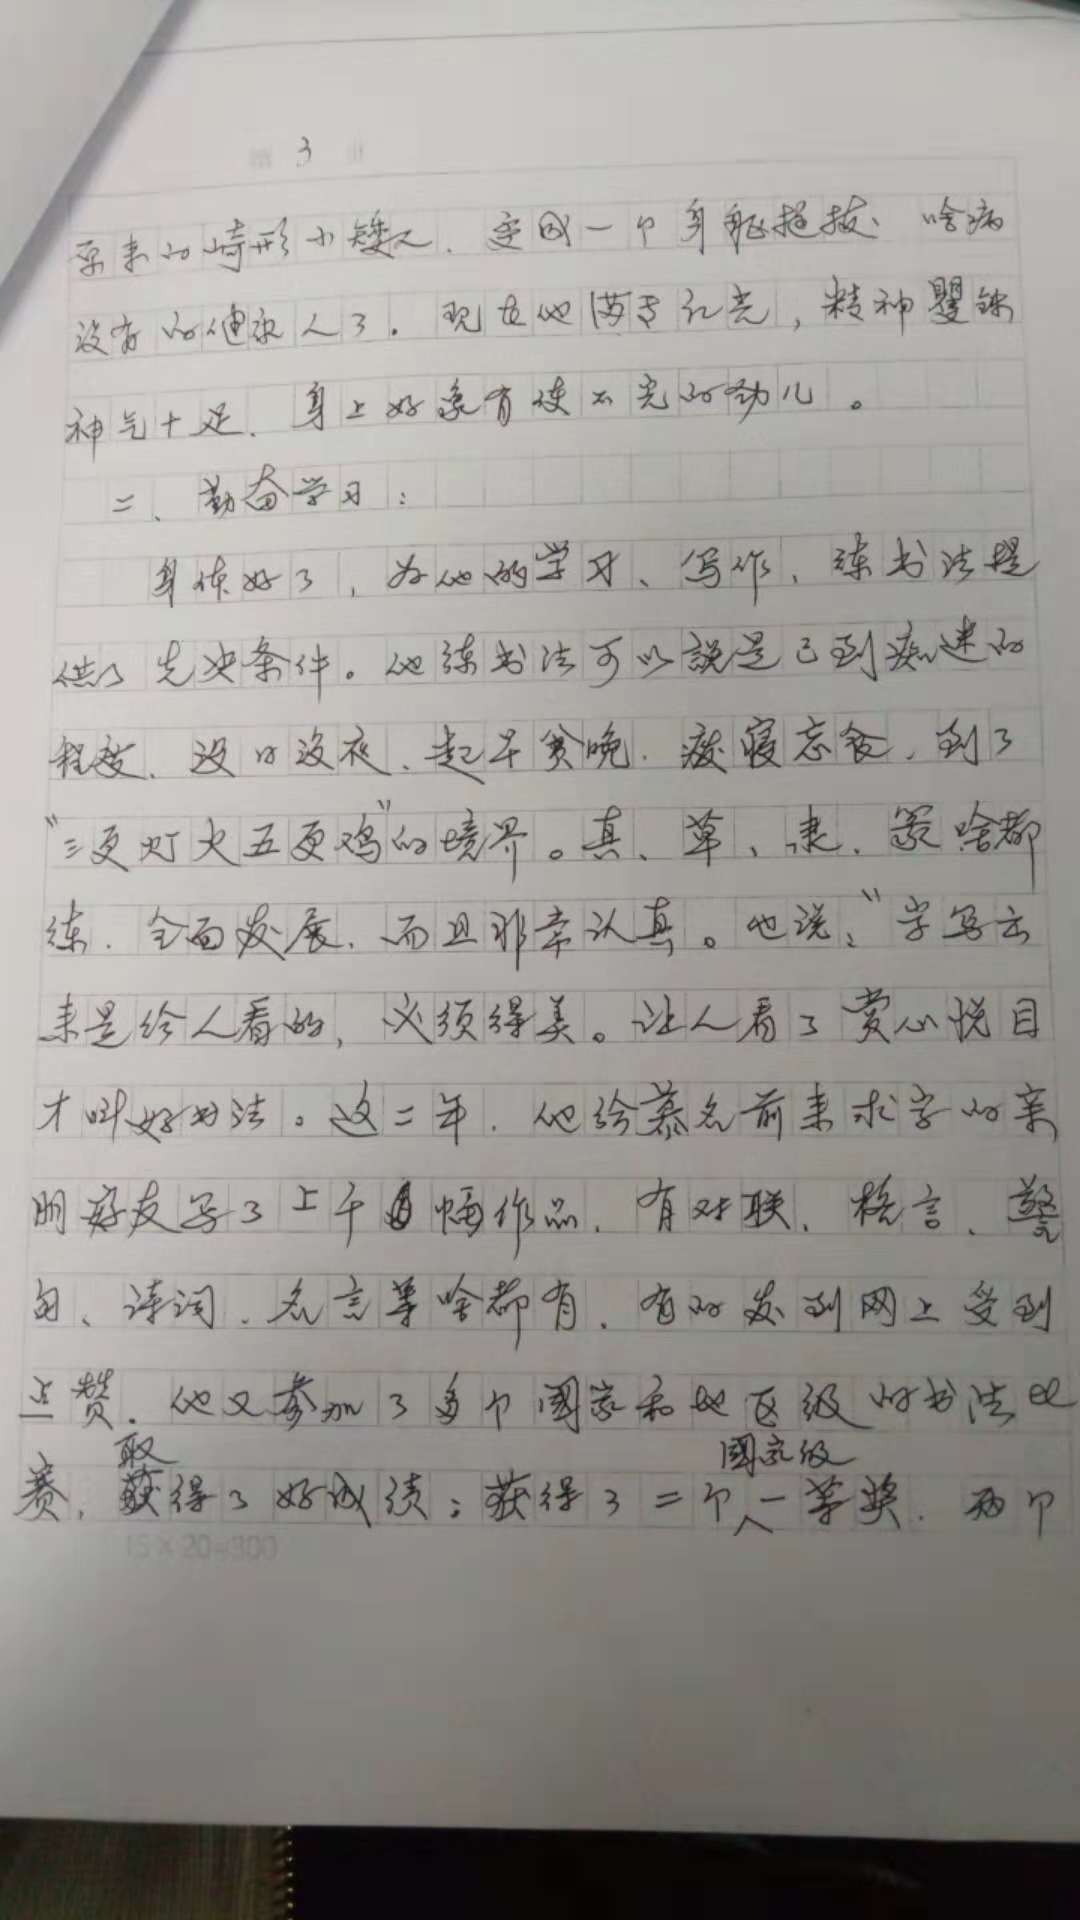 3
原来的崎形小矮人、变成一个身躯挺拔、啥病
没有的健康人了。现在他满面红光，精神矍铄
神气十足、身上好象有使不完的劲儿。
二、勤奋学习：
身体好了，为他的学习、写作、练书法提
供了先决条件。他练书法可以説是已到痴迷的
程度、没日没夜、起早贪晚、废寝忘食、到了
“三更灯火五更鸡”的境界。真、草、隶、篆啥都
练、全面发展、而且非常认真。他说：“字写出
来是给人看的，必须得美。让人看了赏心悦目
才叫好书法。这二年、他给慕名前来求字的亲
朋好友写了上千幅作品、有对联、格言、警
句、诗词、名言等啥都有、有的发到网上受到
点赞。他又参加了多个國家和地区级的书法比
取 國家级
赛，获得了好成绩；获得了二个一等奖、两个
15×20=300